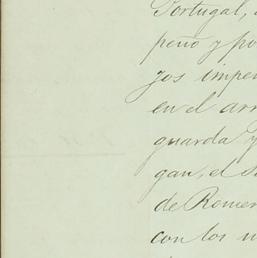 Portugal,
peño y po
jos impe
en el arr
guarda y
gan, el s
de Romer
con los